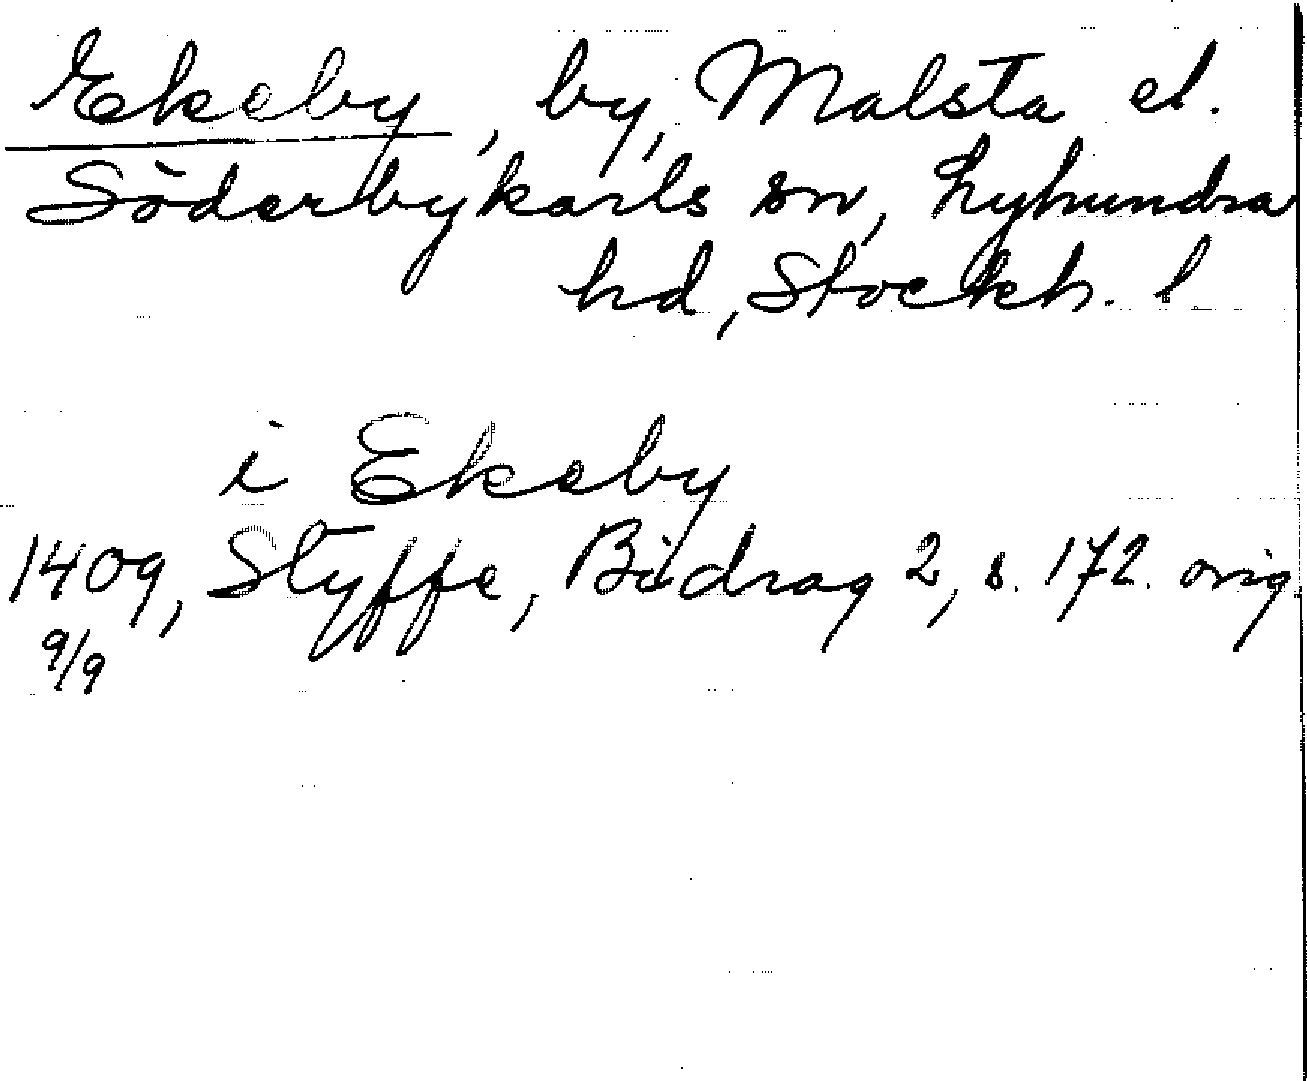 Ekeby, by, Malsta el.
Söderbykarls sn, Lyhundra
hd, Stockh. l
i Ekeby
1409, Styffe, Bidrag 2, s. 172. orig.
9/9